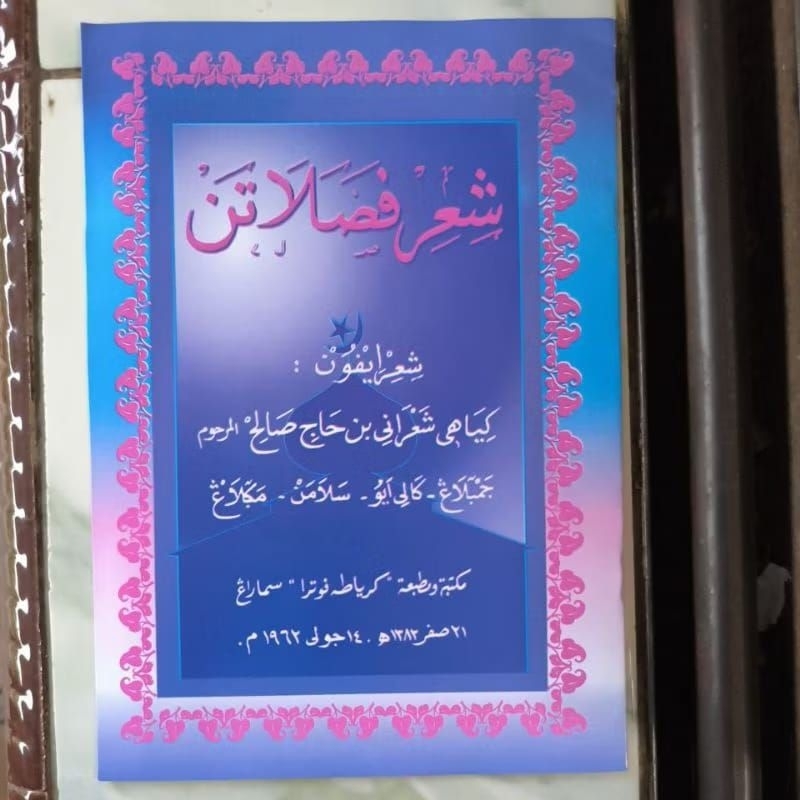 شِعِر فَصَلَاتَنْ
شِعِرْاِيْفُوْنْ :
كِيَاهِى شَعْرَانِى بن حَاجِ صَالِحْ المرحوم
جَمْبَلَاڠْ - كَالِى اَبُو - سَلَامَنْ - مَكَلَاڠْ
مكتبة ومطبعة "كرياطه فوترا" سماراڠ
٢١ صفر ١٣٨٢ھ . ١٤ جولى ١٩٦٢ م.